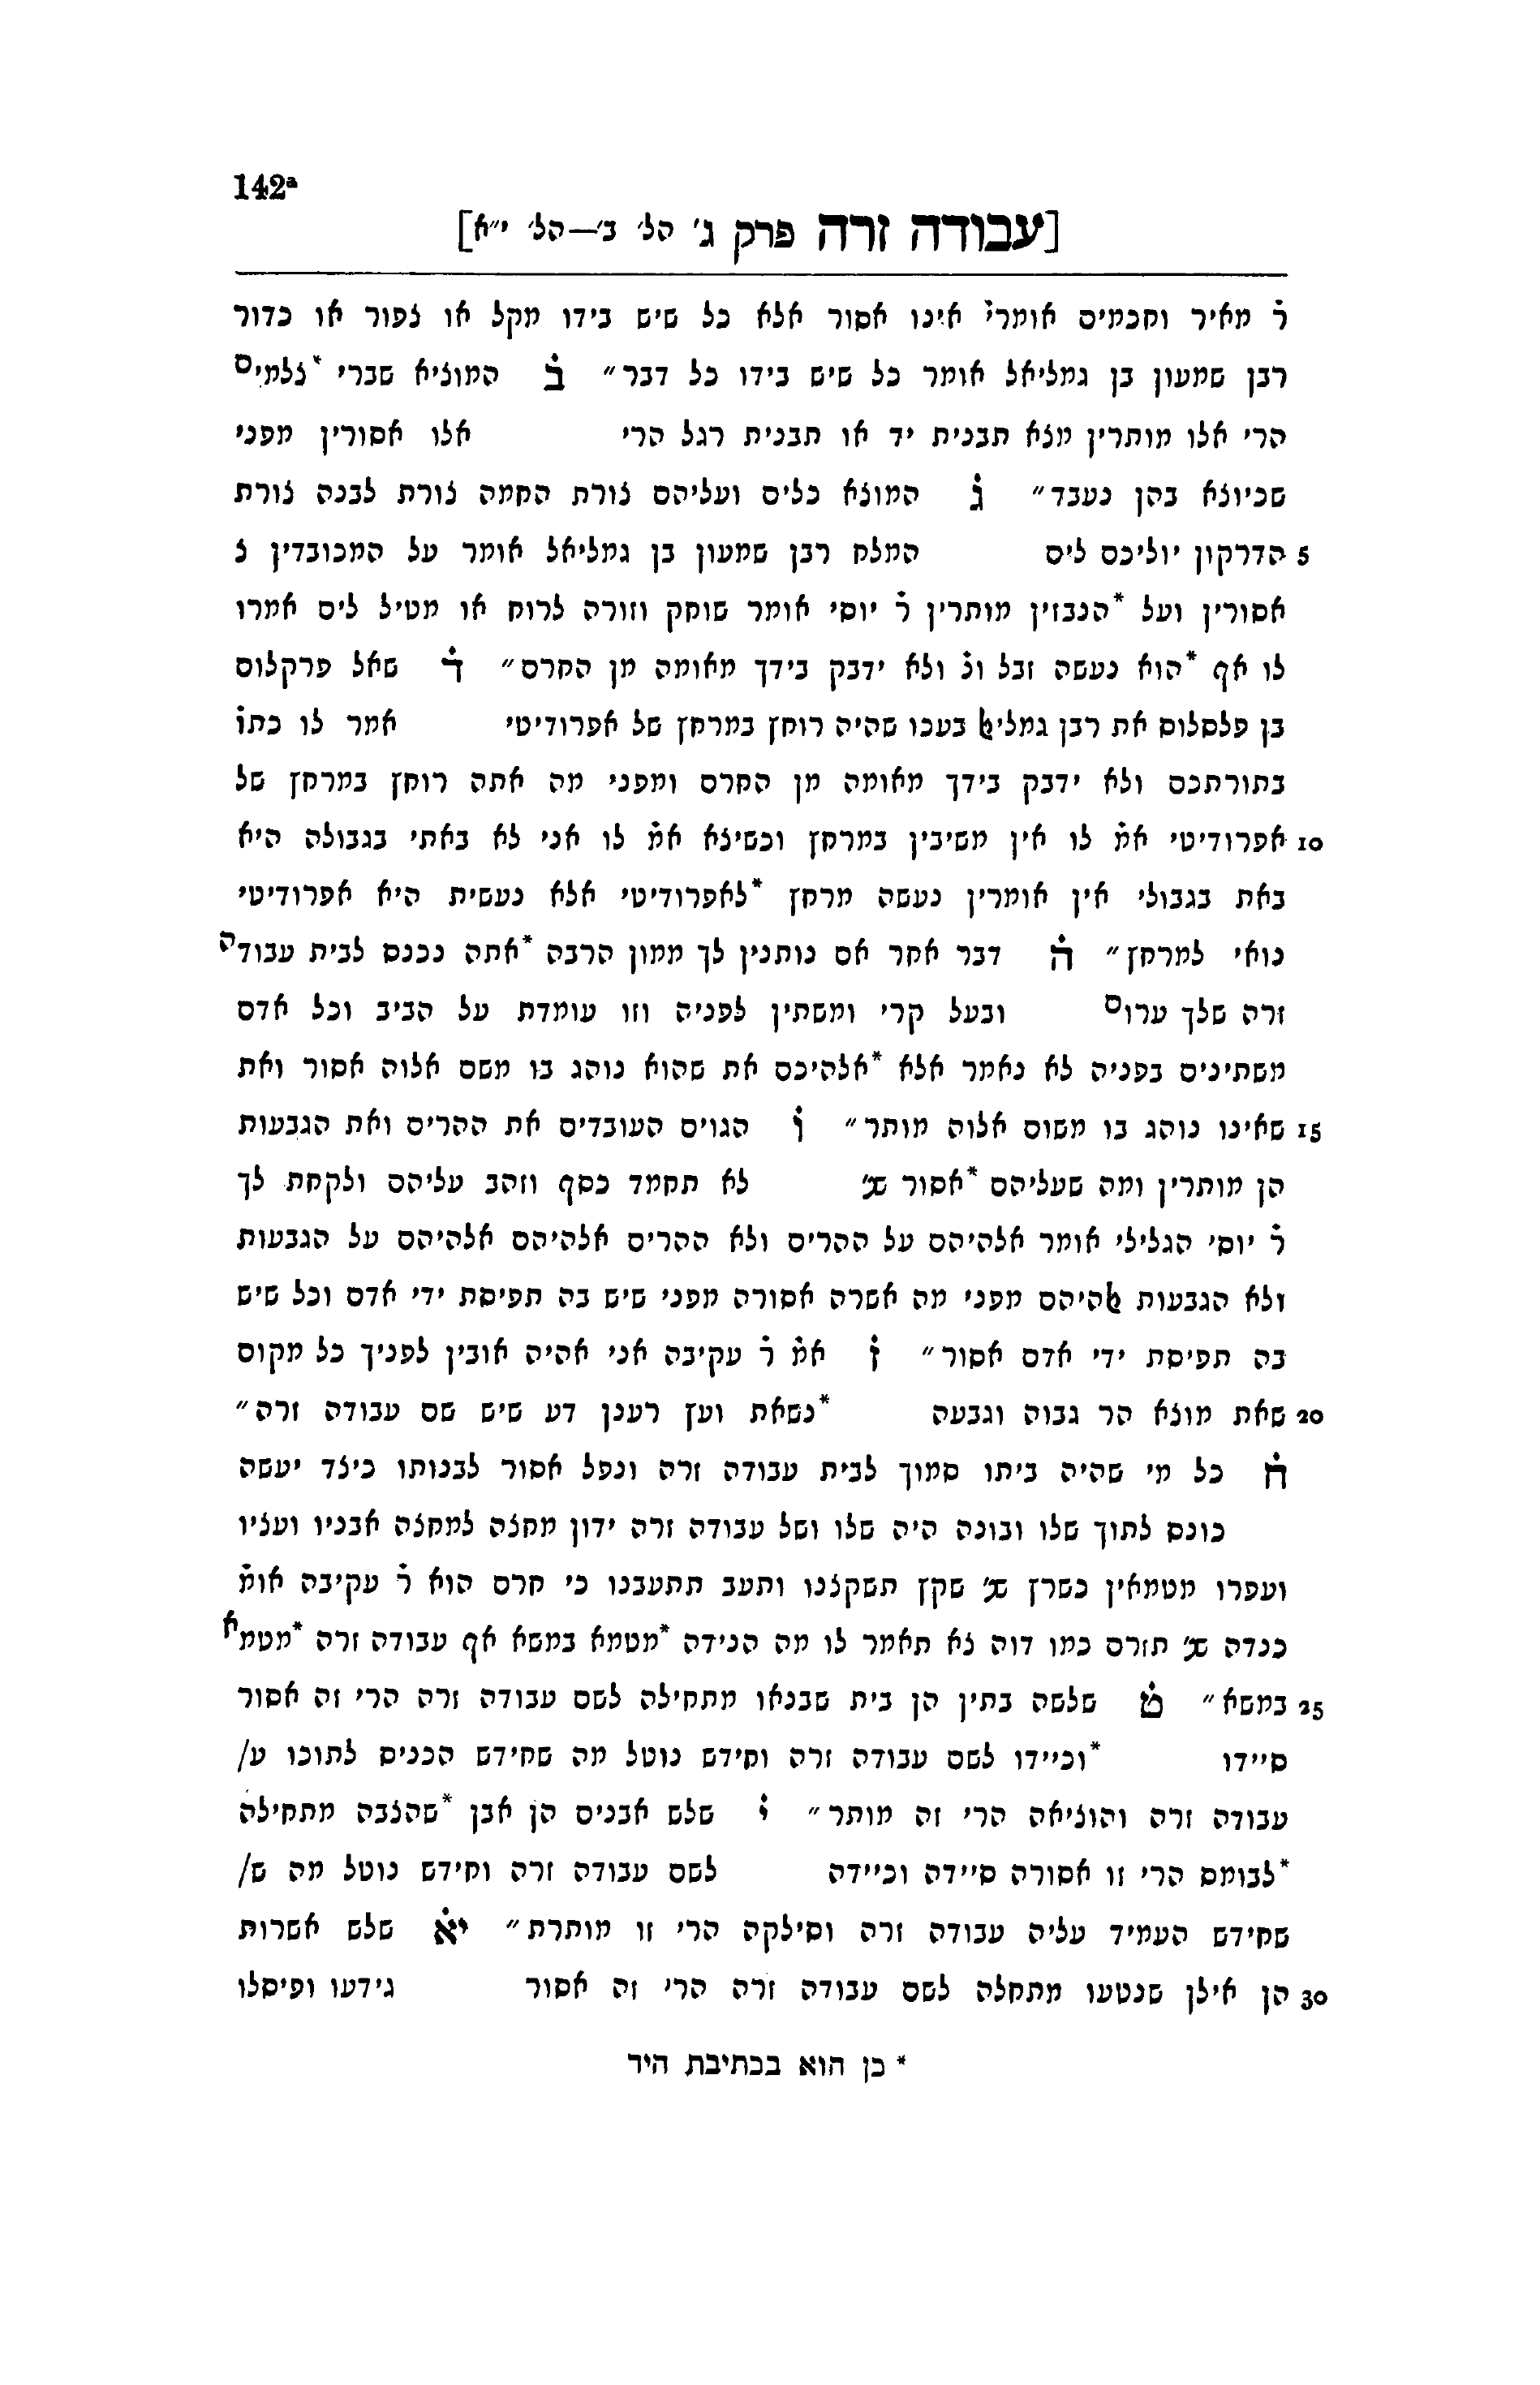 142ª
[עבודה זרה פרק ג' הל' ב'—הל' י״א]
ר̇ מאיר וחכמים אומרי̇ אינו אסור אלא כל שיש בידו מקל או צפור או כדור
רבן שמעון בן גמליאל אומר כל שיש בידו כל דבר״ ב̇ המוציא שברי *צלמים
הרי אלו מותרין מצא תבנית יד או תבנית רגל הרי אלו אסורין מפני
שכיוצא בהן נעבד״ ג̇ המוצא כלים ועליהם צורת החמה צורת לבנה צורת
5 הדרקון יוליכם לים המלח רבן שמעון בן גמליאל אומר על המכובדין צ
אסורין ועל *הנבזין מותרין ר̇ יוסי אומר שוחק וזורה לרוח או מטיל לים אמרו
לו אף *הוא נעשה זבל וג̇ ולא ידבק בידך מאומה מן החרם״ ד̇ שאל פרקלוס
בן פלסלוס את רבן גמליﭏ בעכו שהיה רוחץ במרחץ של אפרודיטי אמר לו כתו̇
בתורתכם ולא ידבק בידך מאומה מן החרם ומפני מה אתה רוחץ במרחץ של
10 אפרודיטי אמ̇ לו אין משיבין במרחץ וכשיצא אמ̇ לו אני לא באתי בגבולה היא
באת בגבולי אין אומרין נעשה מרחץ *לאפרודיטי אלא נעשית היא אפרודיטי
נואי למרחץ״ ה̇ דבר אחר אם נותנין לך ממון הרבה *אתה נכנס לבית עבודה
זרה שלך ערום ובעל קרי ומשתין לפניה וזו עומדת על הביב וכל אדם
משתינים בפניה לא נאמר אלא *אלהיכם את שהוא נוהג בו משם אלוה אסור ואת
15 שאינו נוהג בו משום אלוה מותר״ ו̇ הגוים העובדים את ההרים ואת הגבעות
הן מותרין ומה שעליהם *אסור שנ' לא תחמד כסף וזהב עליהם ולקחת לך
ר̇ יוסי הגלילי אומר אלהיהם על ההרים ולא ההרים אלהיהם אלהיהם על הגבעות
ולא הגבעות ﭏהיהם מפני מה אשרה אסורה מפני שיש בה תפיסת ידי אדם וכל שיש
בה תפיסת ידי אדם אסור״ ז̇ אמ̇ ר̇ עקיבה אני אהיה אובין לפניך כל מקום
20 שאת מוצא הר גבוה וגבעה *נשאת ועץ רענן דע שיש שם עבודה זרה״
ח̇ כל מי שהיה ביתו סמוך לבית עבודה זרה ונפל אסור לבנותו כיצד יעשה
כונס לתוך שלו ובונה היה שלו ושל עבודה זרה ידון מחצה למחצה אבניו ועציו
ועפרו מטמאין כשרץ שנ' שקץ תשקצנו ותעב תתעבנו כי חרם הוא ר̇ עקיבה אומ̇
כנדה שנ' תזרם כמו דוה צא תאמר לו מה הנידה *מטמא במשא אף עבודה זרה *מטמא
25 במשא״ ט̇ שלשה בתין הן בית שבנאו מתחילה לשם עבודה זרה הרי זה אסור
סיידו *וכיידו לשם עבודה זרה וחידש נוטל מה שחידש הכניס לתוכו ע/
עבודה זרה והוציאה הרי זה מותר״ י̇ שלש אבנים הן אבן *שהצבה מתחילה
*לבומס הרי זו אסורה סיידה וכיידה לשם עבודה זרה וחידש נוטל מה ש/
שחידש העמיד עליה עבודה זרה וסילקה הרי זו מותרת״ יא̇ שלש אשרות
30 הן אילן שנטעו מתחלה לשם עבודה זרה הרי זה אסור גידעו ופיסלו
* כן הוא בכתיבת היד